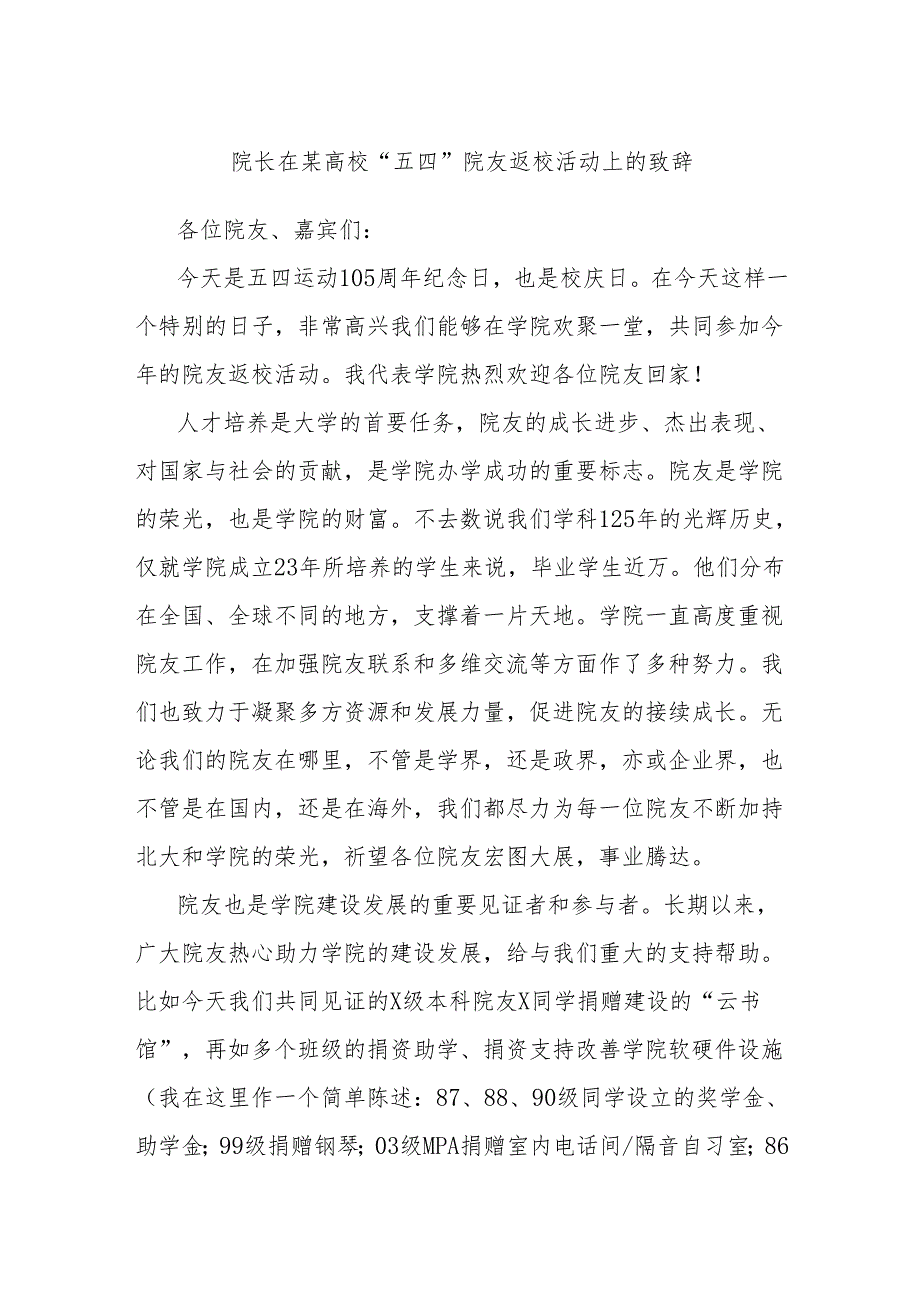 院长在某高校“五四”院友返校活动上的致辞
各位院友、嘉宾们：
今天是五四运动105周年纪念日，也是校庆日。在今天这样一
个特别的日子，非常高兴我们能够在学院欢聚一堂，共同参加今
年的院友返校活动。我代表学院热烈欢迎各位院友回家！
人才培养是大学的首要任务，院友的成长进步、杰出表现、
对国家与社会的贡献，是学院办学成功的重要标志。院友是学院
的荣光，也是学院的财富。不去数说我们学科125年的光辉历史，
仅就学院成立23年所培养的学生来说，毕业学生近万。他们分布
在全国、全球不同的地方，支撑着一片天地。学院一直高度重视
院友工作，在加强院友联系和多维交流等方面作了多种努力。我
们也致力于凝聚多方资源和发展力量，促进院友的接续成长。无
论我们的院友在哪里，不管是学界，还是政界，亦或企业界，也
不管是在国内，还是在海外，我们都尽力为每一位院友不断加持
北大和学院的荣光，祈望各位院友宏图大展，事业腾达。
院友也是学院建设发展的重要见证者和参与者。长期以来，
广大院友热心助力学院的建设发展，给与我们重大的支持帮助。
比如今天我们共同见证的X级本科院友X同学捐赠建设的“云书
馆”，再如多个班级的捐资助学、捐资支持改善学院软硬件设施
（我在这里作一个简单陈述：87、88、90级同学设立的奖学金、
助学金；99级捐赠钢琴；03级MPA捐赠室内电话间/隔音自习室；86